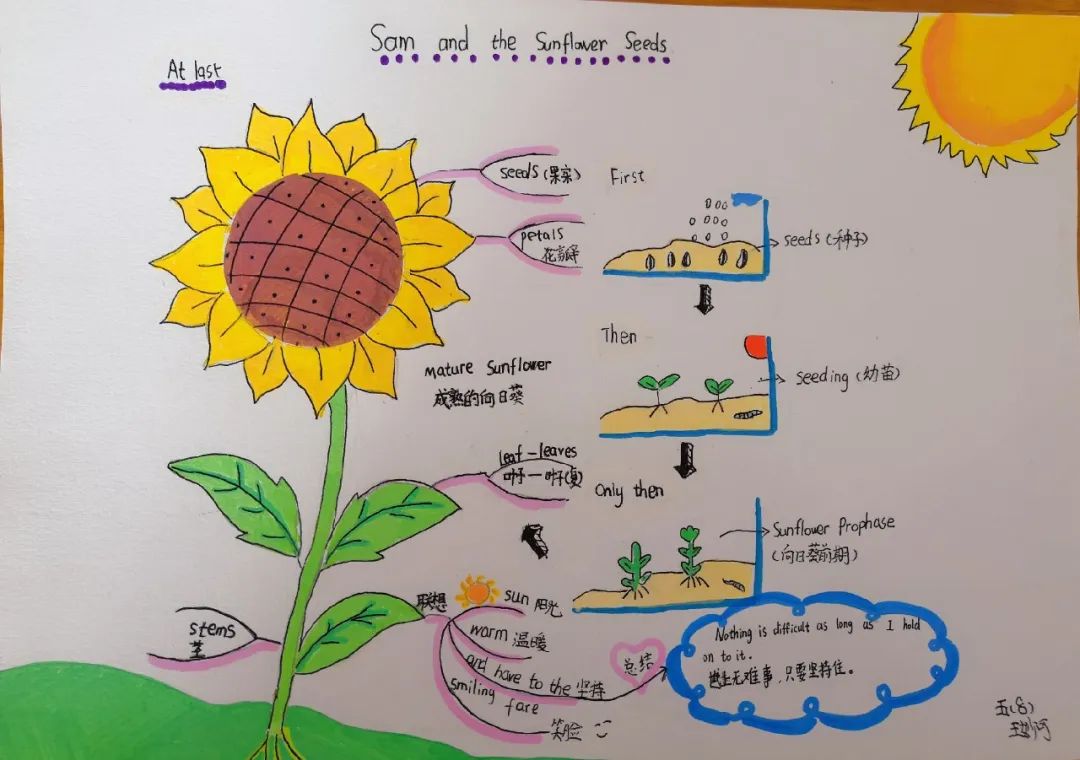 Sam and the Sunflower Seeds
At last
seeds (果实)
petals
花瓣
First
seeds (种子)
Then
seeding (幼苗)
mature Sunflower
成熟的向日葵
leaf-leaves
叶子-叶子(复)
Only then
Sunflower Prophase
(向日葵前期)
stems
茎
联想
sun 阳光
warm 温暖
and have to the 坚持
smiling fare
笑脸
总结
Nothing is difficult as long as I hold
on to it.
世上无难事,只要坚持住。
五(8)